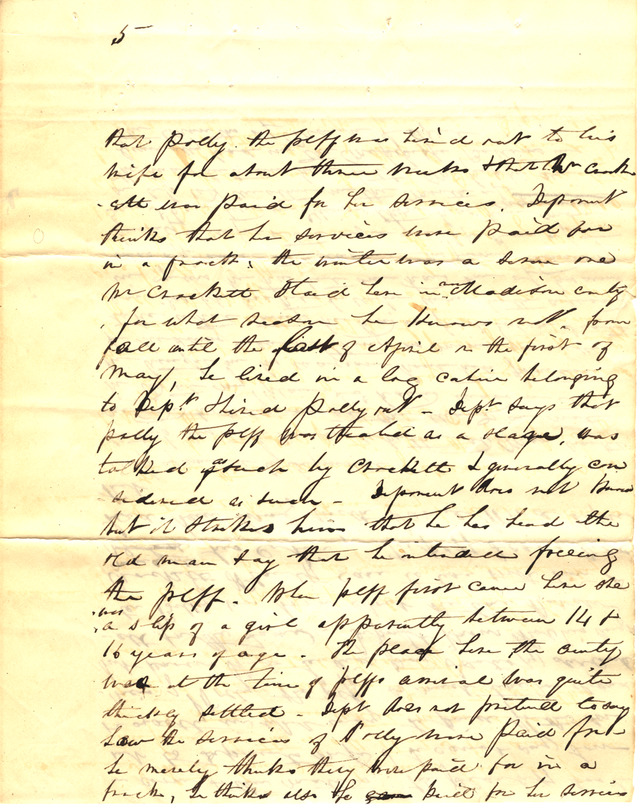 5
that Polly the plff was hired out to his
wife for about three weeks & that Mr Crock
-ett was paid for her services. Deponent
thinks that her services were paid for
in a frock; the winter was a severe one
Mr Crockett staid here in Madison County
for what season he knows not, from
fall until the last of April or the first of
May, he lived in a log cabin belonging
to Dept. & hired Polly out - Dept. says that
Polly the plff was treated as a slave, was
as such by Crockett & generally con
-sidered as such - Deponent does not know
but it strikes him that he has heard the
old man say that he intended freeing
the plff. When plff first came here she
was
a slip of a girl apparently between 14 &
16 years of age. The place here the county
was at the time of plffs arrival was quite
thickly settled - Dept does not pretend to say
how the services of Polly were paid for
he merely thinks they were paid for in a
frock, he thinks also he paid for her services